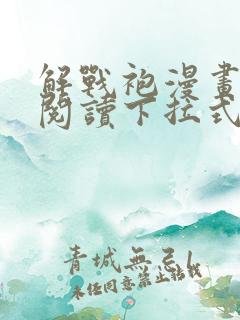 解戰袍漫畫
閱讀下拉式
青城無忌
未任同意禁止轉載